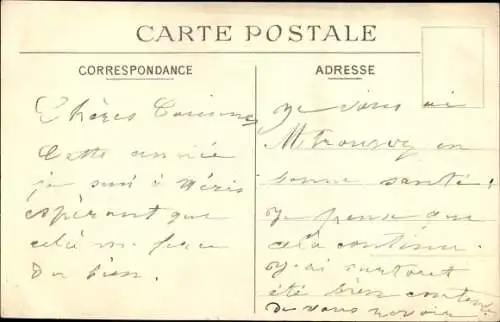 CARTE POSTALE
CORRESPONDANCE
Chères Cousines
Cette année
je suis à Néris
espérant que
celà me fera
du bien.
ADRESSE
Je vous ai
en
bonne santé!
je pense que
cela continue.
J'ai surtout
été bien
de vous revoir